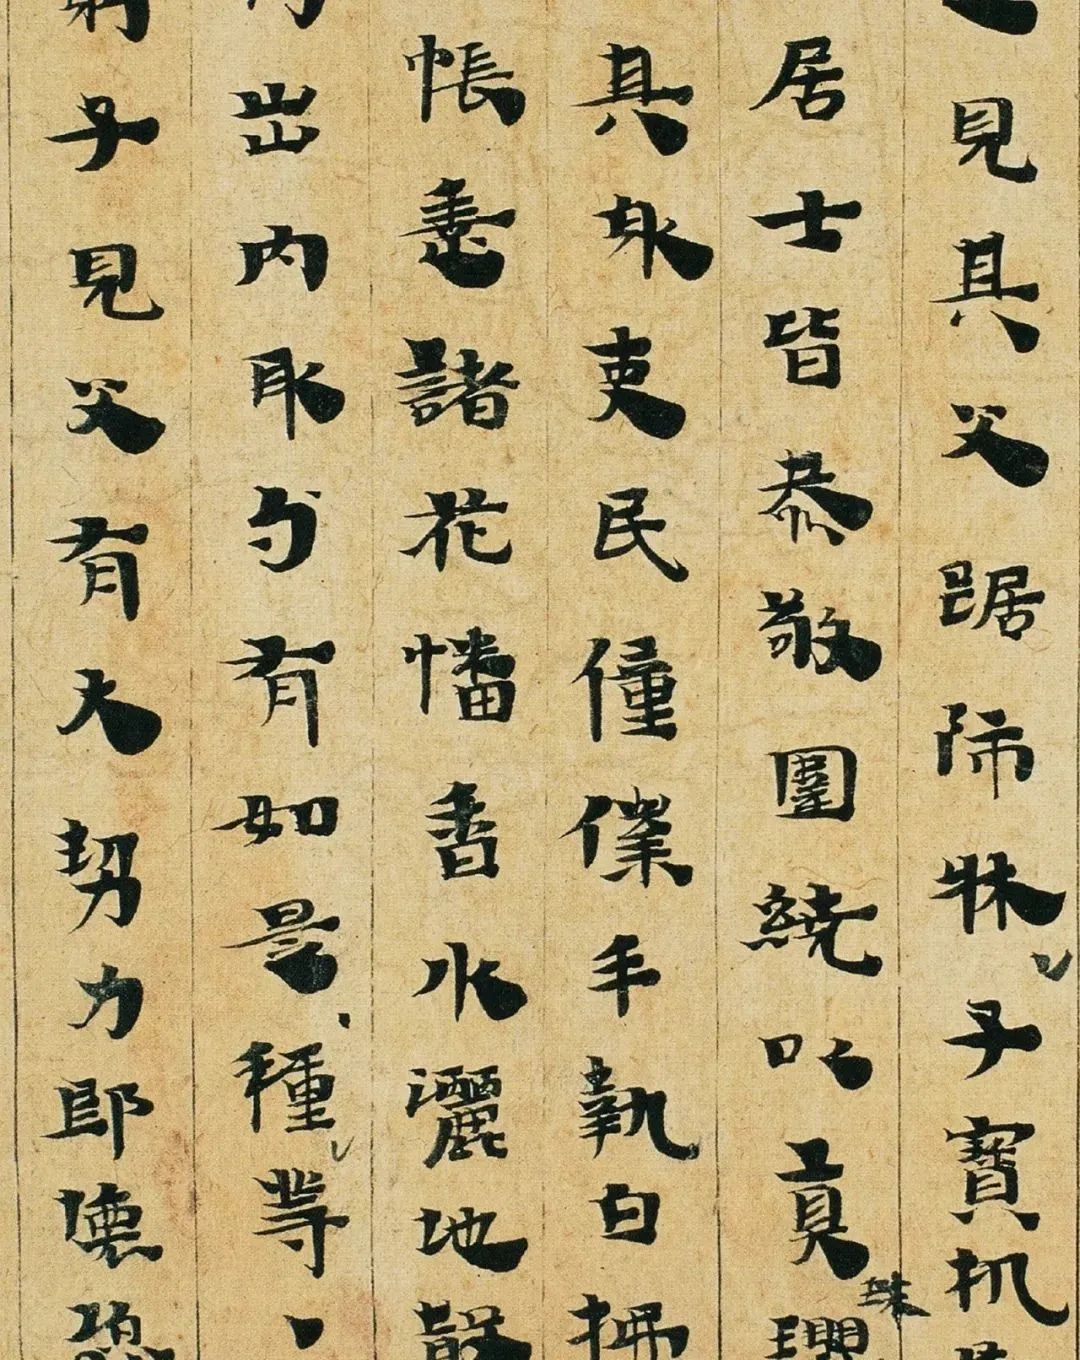 見其父踞師牀子寶机
居士皆恭敬圍繞以真珠瓔
其身吏民僮僕手執白拂
帳垂諸花幡香水灑地散
出内取与有如是種等
子見父有大勢力即懷恐